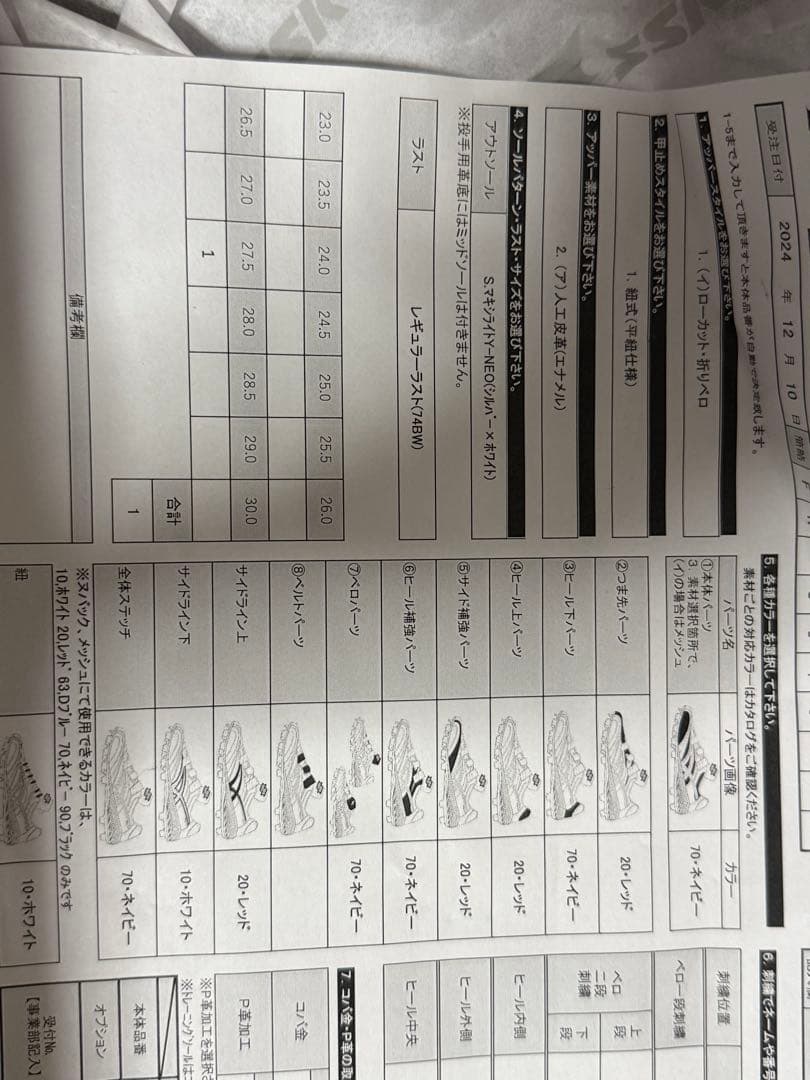 SSK
受注日付 2024 年 12 月 10 日
1~5まで入力して頂きますと本体品番が自動で決定致します。
1. アッパースタイルをお選び下さい。
1. (イ)ローカット・折りベロ
2. 甲止めスタイルをお選び下さい。
1. 紐式(平紐仕様)
3. アッパー素材をお選び下さい。
2. (ア)人工皮革(エナメル)
4. ソールパターン・ラスト・サイズをお選び下さい。
アウトソール S.マキシライトY-NEO(シルバー×ホワイト)
※投手用革底にはミッドソールは付きません。
ラスト レギュラーラスト(74BW)
23.0 23.5 24.0 24.5 25.0 25.5 26.0
26.5 27.0 27.5 28.0 28.5 29.0 30.0
1
合計
1
備考欄
5. 各種カラーを選択して下さい。
素材ごとの対応カラーはカタログをご確認ください。
パーツ名 パーツ画像 カラー
①本体パーツ
3. 素材選択箇所で、
(イ)の場合はメッシュ
70・ネイビー
②つま先パーツ 20・レッド
③ヒール下パーツ 70・ネイビー
④ヒール上パーツ 20・レッド
⑤サイド補強パーツ 20・レッド
⑥ヒール補強パーツ 70・ネイビー
⑦ベロパーツ 70・ネイビー
⑧ベルトパーツ
サイドライン上 20・レッド
サイドライン下 10・ホワイト
全体ステッチ 70・ネイビー
※ヌバック、メッシュにて使用できるカラーは、
10,ホワイト 20,レッド 63,Dブルー 70,ネイビー 90,ブラック のみです
紐 10・ホワイト
6. 刺繍でネームや番号
刺繍位置
ベロ一段刺繍
ベロ二段刺繍 上段
下段
ヒール内側
ヒール外側
ヒール中央
7. コバ金・P革の取
コバ金
P革加工
※P革加工を選択さ
※トレーニングソールは
本体品番
オプション
受付No.
【事業部記入】